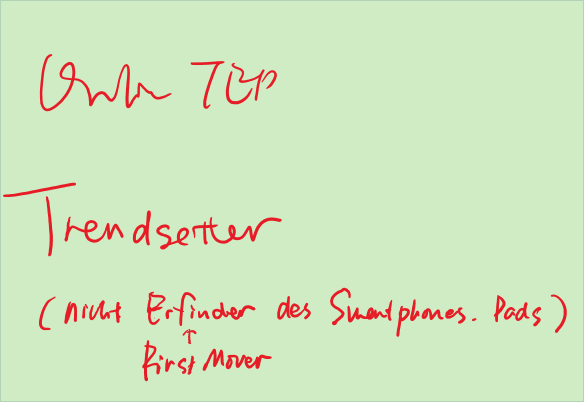 TCP
Trendsetter
(nicht Erfinder des Smartphones. Pads)
↑
First Mover